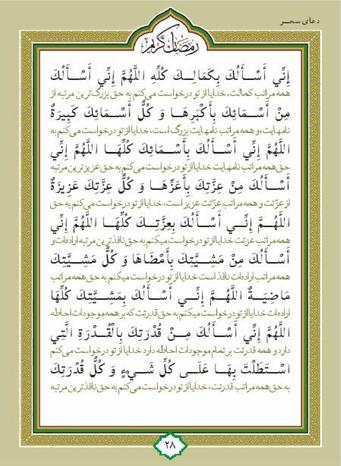 دعای سحر
رمضان کریم
إِنِّي أَسْأَلُكَ بِكَمَالِكَ كُلِّهِ اللَّهُمَّ إِنِّي أَسْأَلُكَ
همه مراتب کمالت، خدایا از تو درخواست می‌کنم به حق بزرگ‌ترین مرتبه از
مِنْ أَسْمَائِكَ بِأَكْبَرِهَا وَ كُلُّ أَسْمَائِكَ كَبِيرَةٌ
نامهایت، و همه مراتب نامهایت بزرگ است، خدایا از تو درخواست می‌کنم به
اللَّهُمَّ إِنِّي أَسْأَلُكَ بِأَسْمَائِكَ كُلِّهَا اللَّهُمَّ إِنِّي
حق همه مراتب نامهایت خدایا از تو درخواست می‌کنم به حق عزیزترین مرتبه
أَسْأَلُكَ مِنْ عِزَّتِكَ بِأَعَزِّهَا وَ كُلُّ عِزَّتِكَ عَزِيزَةٌ
از عزّتت و همه مراتب عزّتت عزیز است، خدایا از تو درخواست می‌کنم به حق
اللَّهُمَّ إِنِّي أَسْأَلُكَ بِعِزَّتِكَ كُلِّهَا اللَّهُمَّ إِنِّي
همه مراتب عزتت، خدایا از تو درخواست میکنم به حق نافذترین مرتبه اراده‌ات و
أَسْأَلُكَ مِنْ مَشِيَّتِكَ بِأَمْضَاهَا وَ كُلُّ مَشِيَّتِكَ
همه مراتب اراده‌ات نافذ است خدایا از تو درخواست می‌کنم به حق همه
مَاضِيَةٌ اللَّهُمَّ إِنِّي أَسْأَلُكَ بِمَشِيَّتِكَ كُلِّهَا
مراتب اراده‌ات، خدایا از تو درخواست میکنم به حق قدرتت که بر همه موجودات احاطه
اللَّهُمَّ إِنِّي أَسْأَلُكَ مِنْ قُدْرَتِكَ بِالْقُدْرَةِ الَّتِي
دارد و همه قدرتت بر تمام موجودات احاطه دارد خدایا از تو درخواست می‌کنم
اسْتَطَلْتَ بِهَا عَلَى كُلِّ شَيْءٍ وَ كُلُّ قُدْرَتِكَ
به حق همه مراتب قدرتت، خدایا از تو درخواست می‌کنم به حق نافذترین مرتبه
۲۸